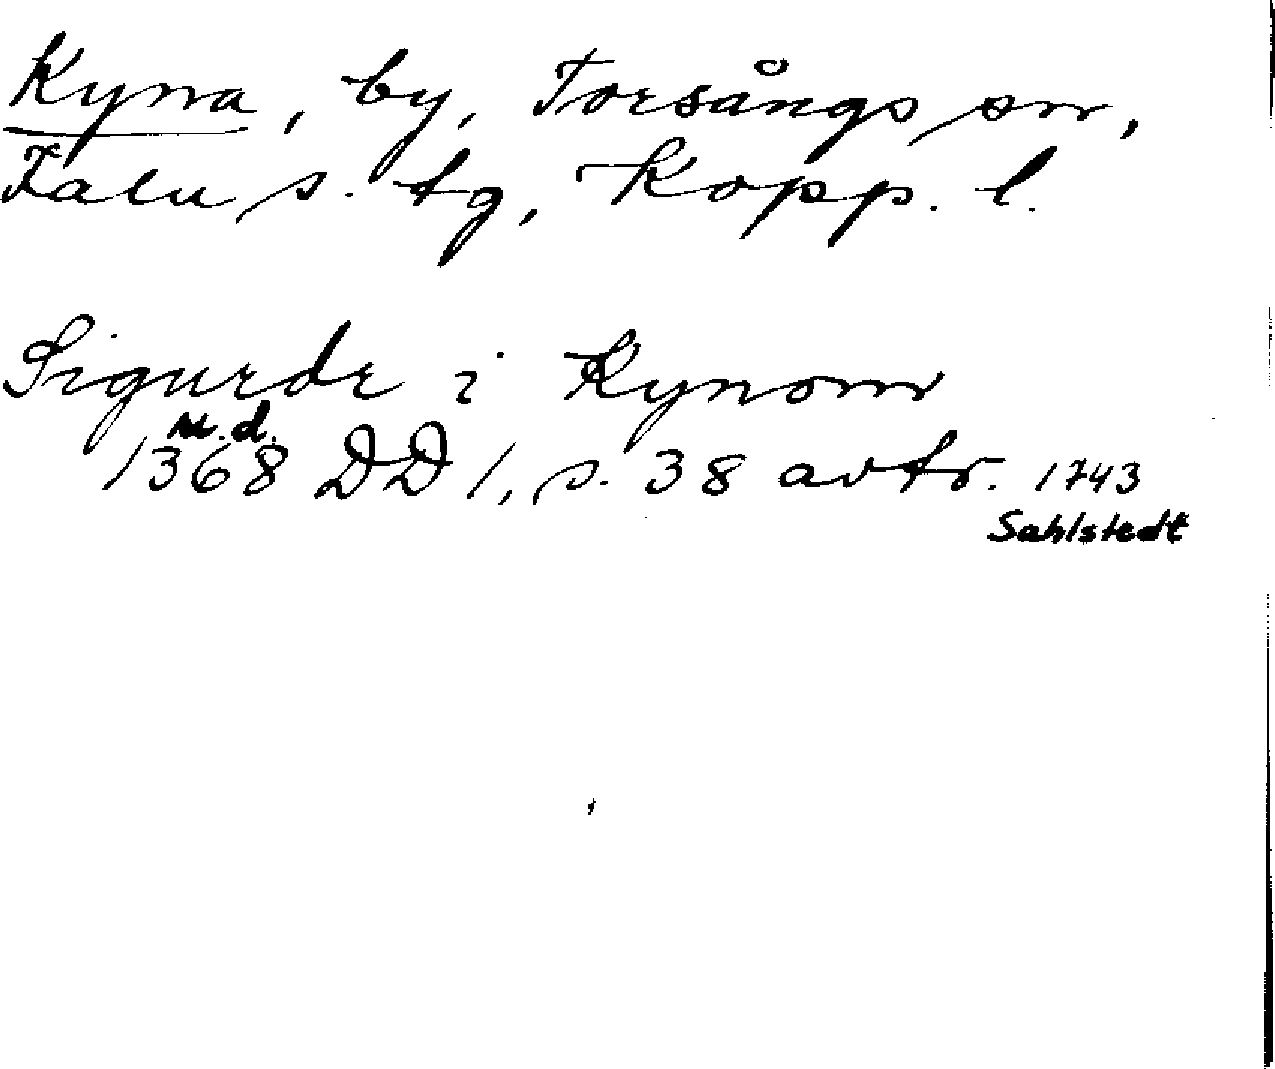 Kyna, by, Torsångs sn,
Falu s. tg, Kopp. l.
Sigurdr i Kynom
u.d.
1368 DD 1, s. 38 avtr. 1743
Sahlstedt